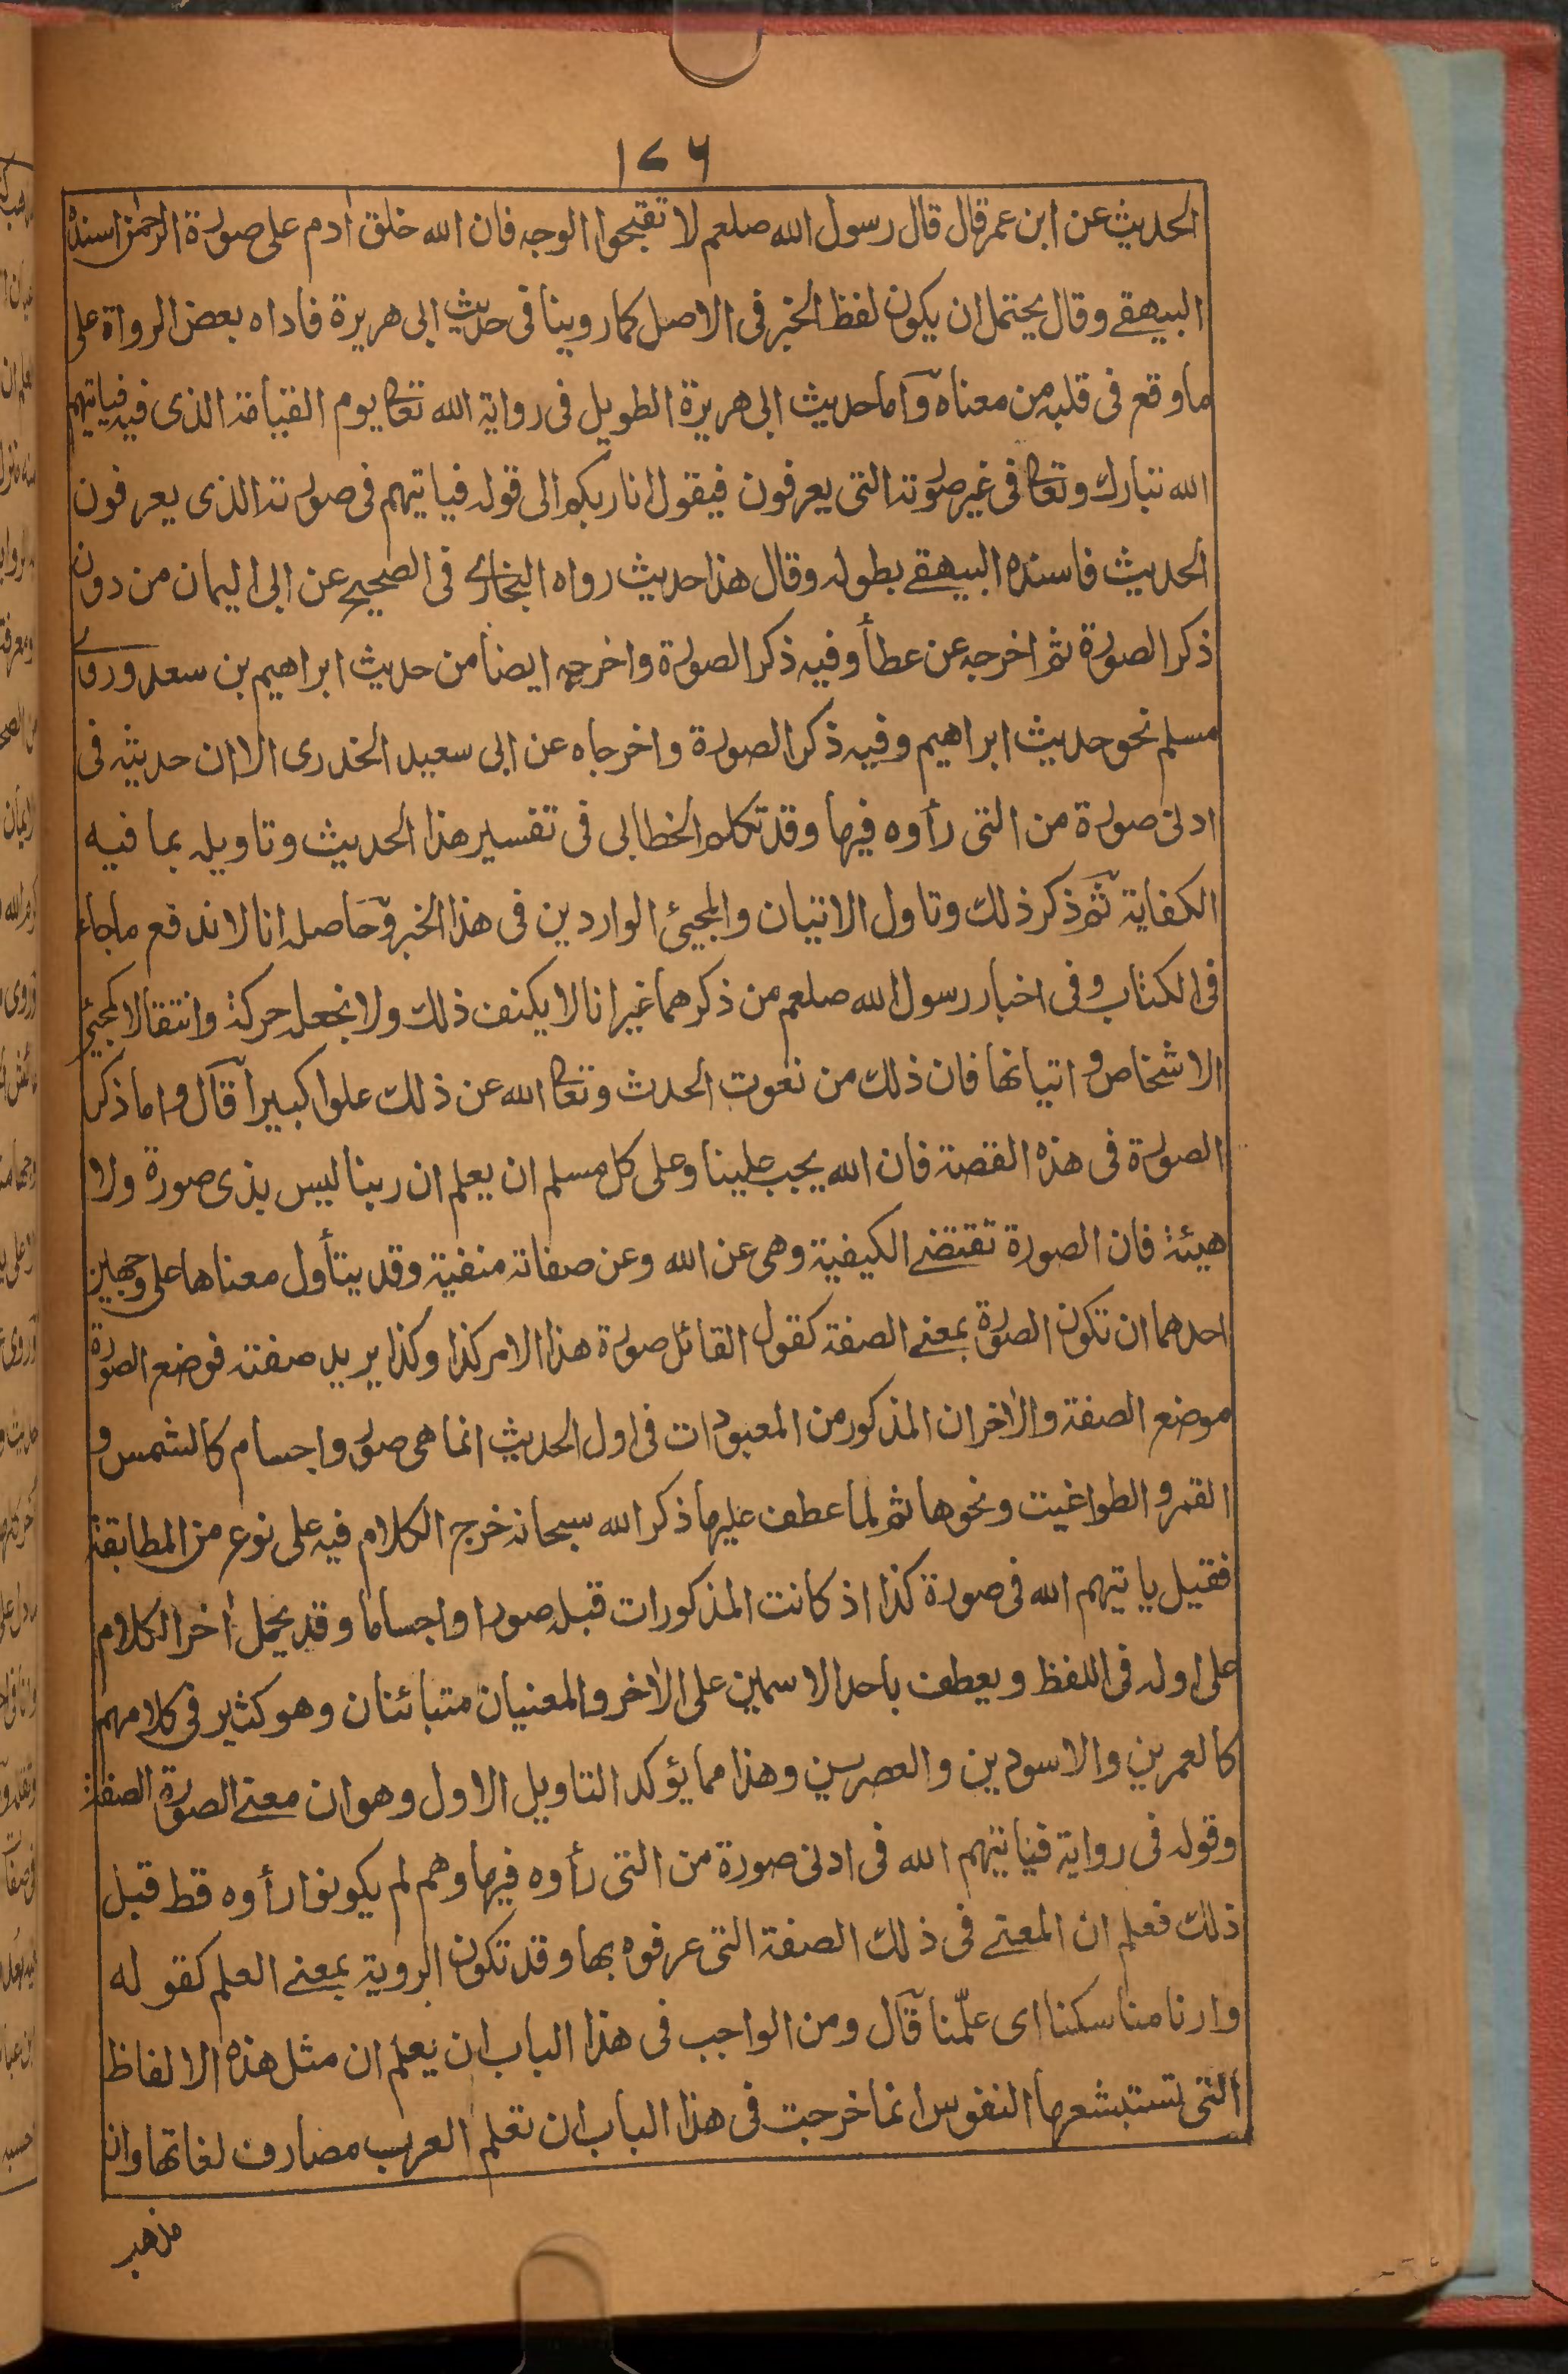 ١٤٦
الحديث عن ابن عمر قال قال رسول الله صلعم لا تقبحوا الوجه فان الله خلق أدم على صورة الرحمن اسنده
البيهقے وقال يحتمل ان يكون لفظ الخبر فى الاصل كما روينا فى حديث ابى هريرة فاداه بعض الرواة على
ما وقع فى قلبه من معناه وآما حديث ابى هريرة الطويل فى رواية الله تعا يوم القيامة الذى فيه فياتيهم
الله تبارك وتعا فى غير صورته التى يعرفون فيقول انا ربكم الى قوله فياتيهم فى صورته الذى يعرفون
الحديث فاسنده البيهقے بطوله وقال هذا حديث رواه البخارى فى الصحيح عن ابى اليمان من دون
ذكر الصورة ثم اخرجه عن عطأ وفيه ذكر الصورة واخرجه ايضا من حديث ابراهيم بن سعد وروى
مسلم نحو حديث ابراهيم وفيه ذكر الصورة واخرجاه عن ابى سعيد الخدرى الا ان حديثه فى
ادنى صورة من التى رأوه فيها وقد تكلم الخطابى فى تفسير هذا الحديث وتاويله بما فيه
الكفاية ثمّ ذكر ذلك وتاول الاتيان والمجيئ الواردين فى هذا الخبر وحاصله انا لا ندفع ما جاء
فى الكتاب وفى اخبار رسول الله صلعم من ذكرهما غير انا لا يكنف ذلك ولا نجعله حركة وانتقالا كمجيئ
الاشخاص و اتيانها فان ذلك من نعوت الحدث وتعا الله عن ذلك علوا كبيرا قآل واما ذكر
الصورة فى هذه القصة فان الله يجب علينا وعلى كل مسلم ان يعلم ان ربنا ليس بذى صورة ولا
هيئة فان الصورة تقتضے الكيفية وهى عن الله وعن صفاته منفية وقد يتأول معناها على وجهين
احدهما ان تكون الصورة بمعنے الصفة كقول القائل صورة هذا الامر كذا وكذا يريد صفته فوضع الصورة
موضع الصفة والأخر ان المذكور من المعبودات فى اول الحديث انما هى صور واجسام كالشمس و
القمر و الطواغيت ونحوها ثم لما عطف عليها ذكر الله سبحانه خرج الكلام فيه على نوع من المطابقة
فقيل ياتيهم الله فى صورة كذا اذ كانت المذكورات قبله صورا واجساما وقد يحمل أخر الكلام
على اوله فى اللفظ ويعطف باحد الاسمين على الأخر والمعنيان متبائنان وهو كثير فى كلامهم
كالعمرين والاسودين والعصرين وهذا مما يؤكد التاويل الاول وهو ان معنے الصورة الصفة
وقوله فى رواية فياتيهم الله فى ادنى صورة من التى رأوه فيها وهم لم يكونوا رأوه قط قبل
ذلك فعلم ان المعنے فى ذلك الصفة التى عرفوه بها وقد تكون الروية بمعنے العلم كقوله
وارنا مناسكنا اى علّمنا قآل ومن الواجب فى هذا الباب ان يعلم ان مثل هذه الالفاظ
التى تستبشعها النفوس انما خرجت فى هذا الباب ان تعلم العرب مصارف لغاتها وان
مذهب